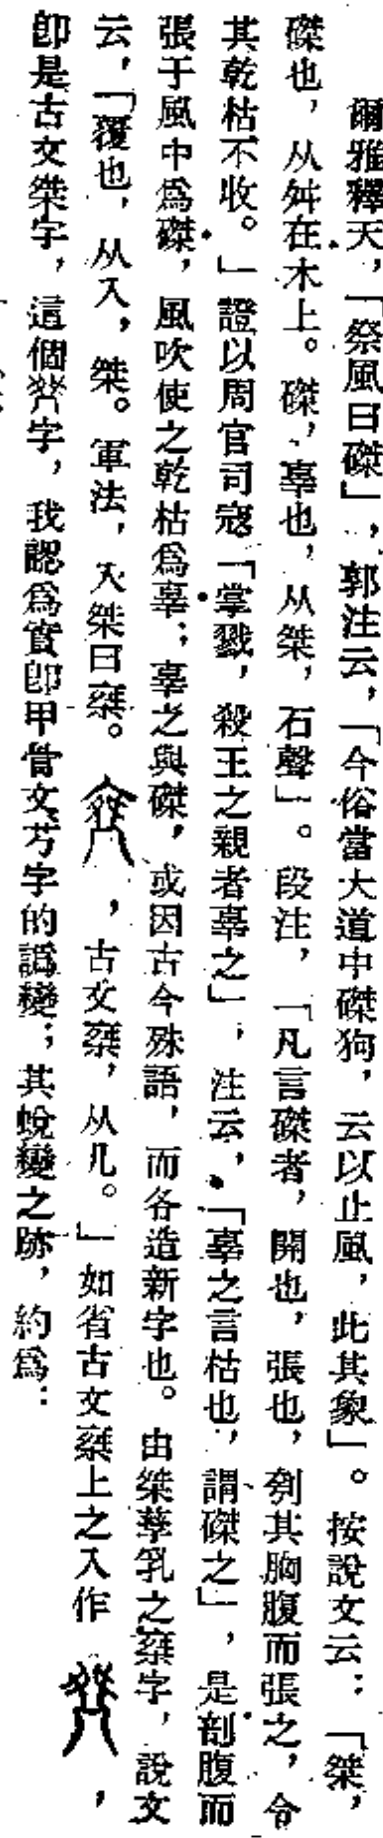 爾雅釋天，「祭風曰磔」，郭注云，「今俗當大道中磔狗，云以止風，此其象」。按說文云：「桀，
磔也，从舛在木上。磔，辜也，从桀，石聲」。段注，「凡言磔者，開也，張也，刳其胸腹而張之，令
其乾枯不收。」證以周官司寇「掌戮，殺王之親者辜之」，注云，「辜之言枯也，謂磔之」，是剖腹而
張于風中爲磔，風吹使之乾枯爲辜；辜之與磔，或因古今殊語，而各造新字也。由桀孳乳之椉字，說文
云，「覆也，从入，桀。軍法，入桀曰椉。，古文椉，从几。」如省古文椉上之入作，
卽是古文桀字，這個字，我認爲實卽甲骨文字的譌變；其蛻變之跡，約爲：